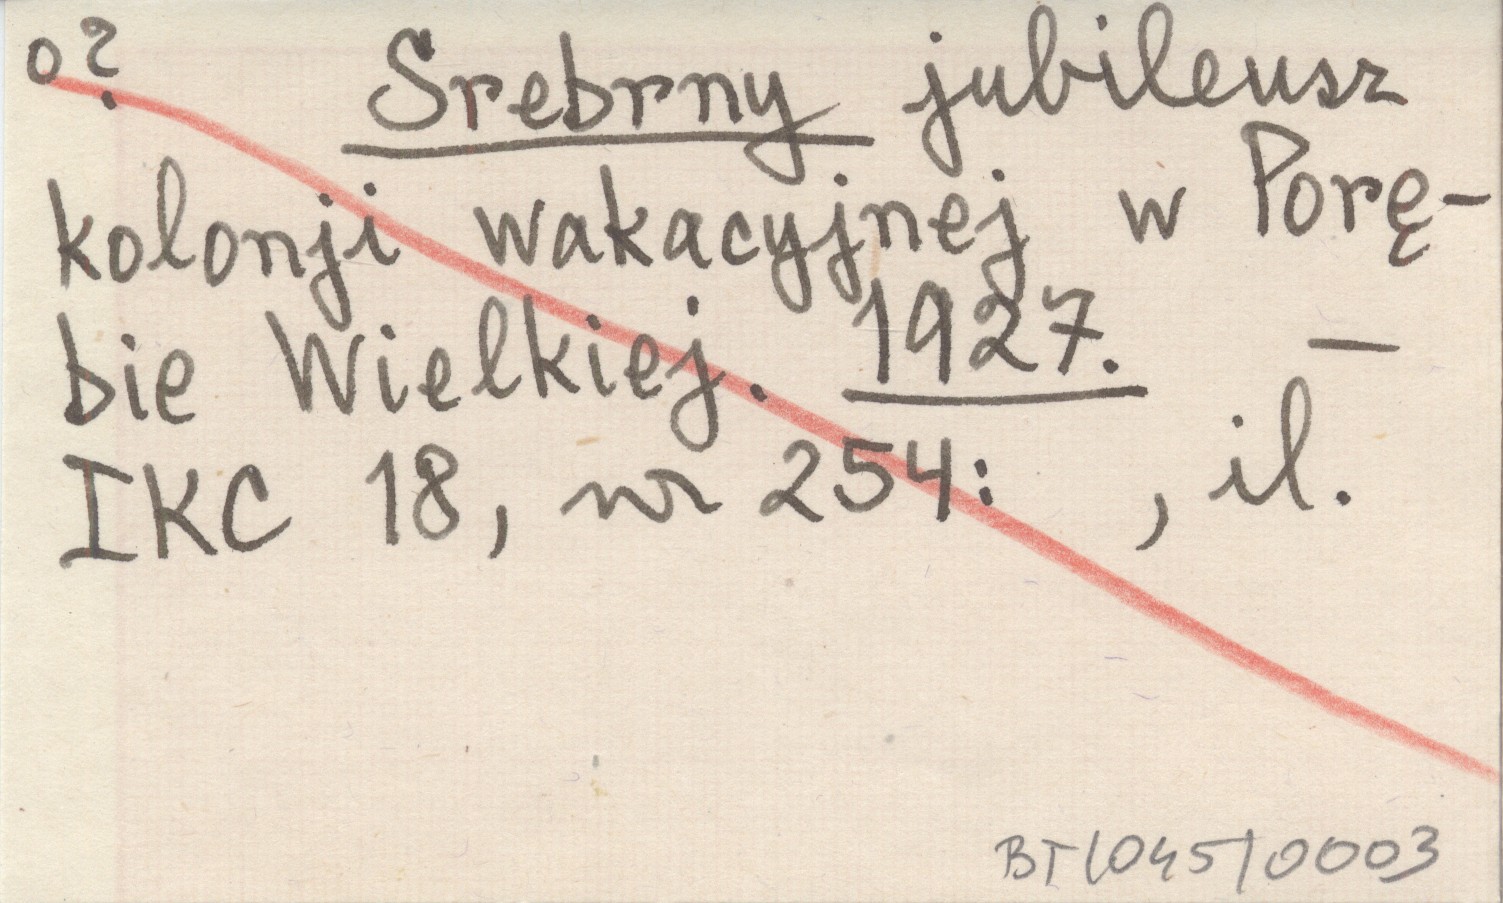 o? Srebrny jubileusz
kolonji wakacyjnej w Porę-
bie Wielkiej. 1927. —
IKC 18, nr 254: , il.
BT/045/0003